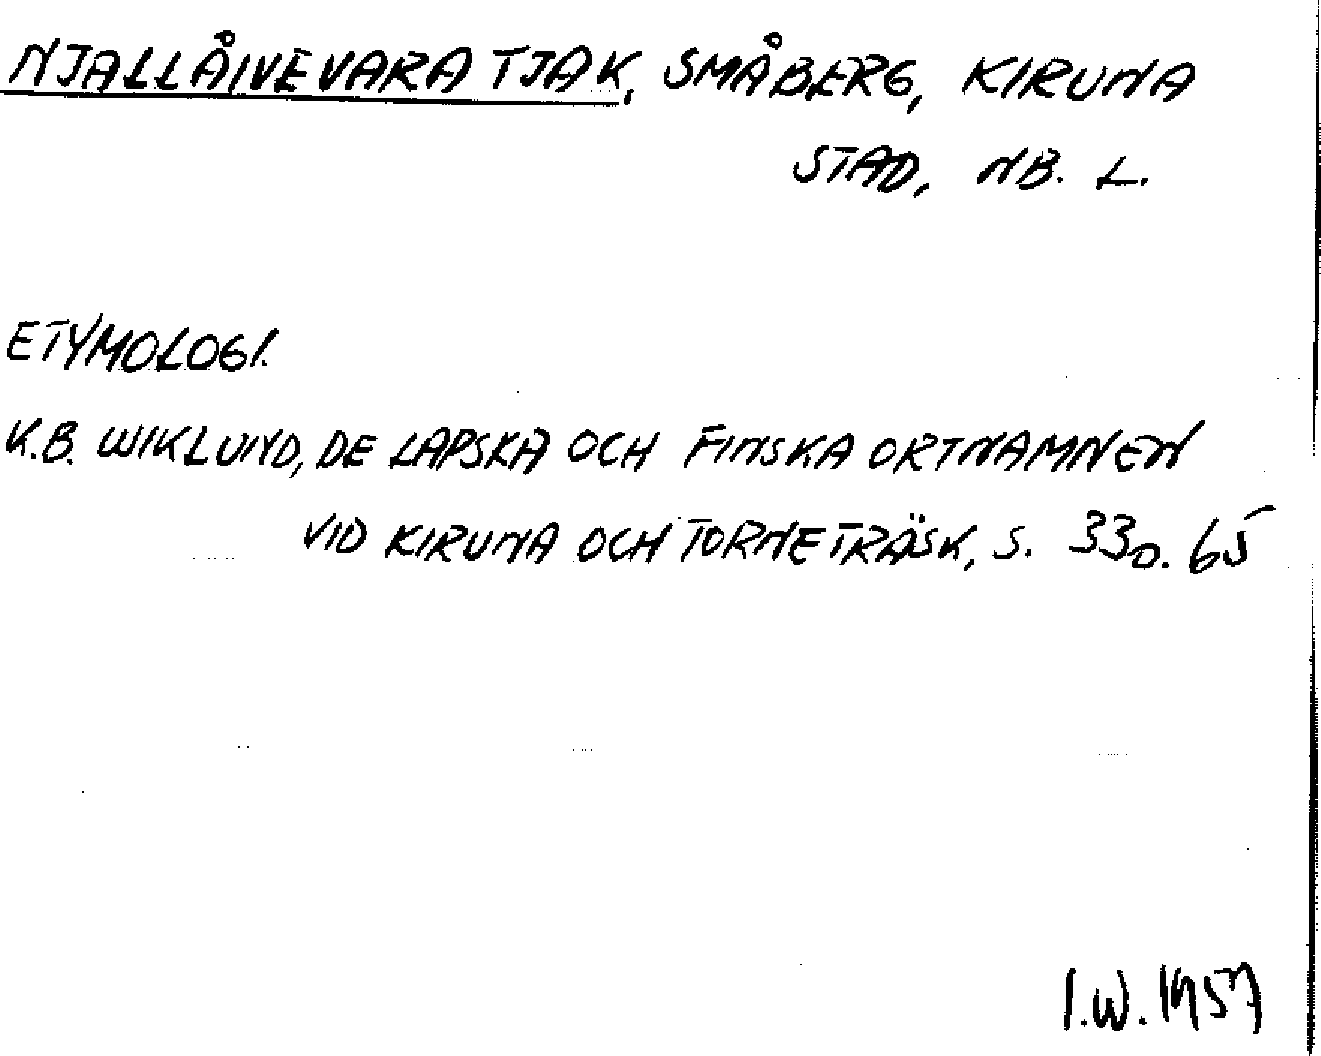 NJALLÅIVEVARATJAK, SMÅBERG, KIRUNA
STAD, NB. L.
ETYMOLOGI.
K.B. WIKLUND, DE LAPSKA OCH FINSKA ORTNAMNEN
VID KIRUNA OCH TORNETRÄSK, S. 33 O. 65
I.W. 1957